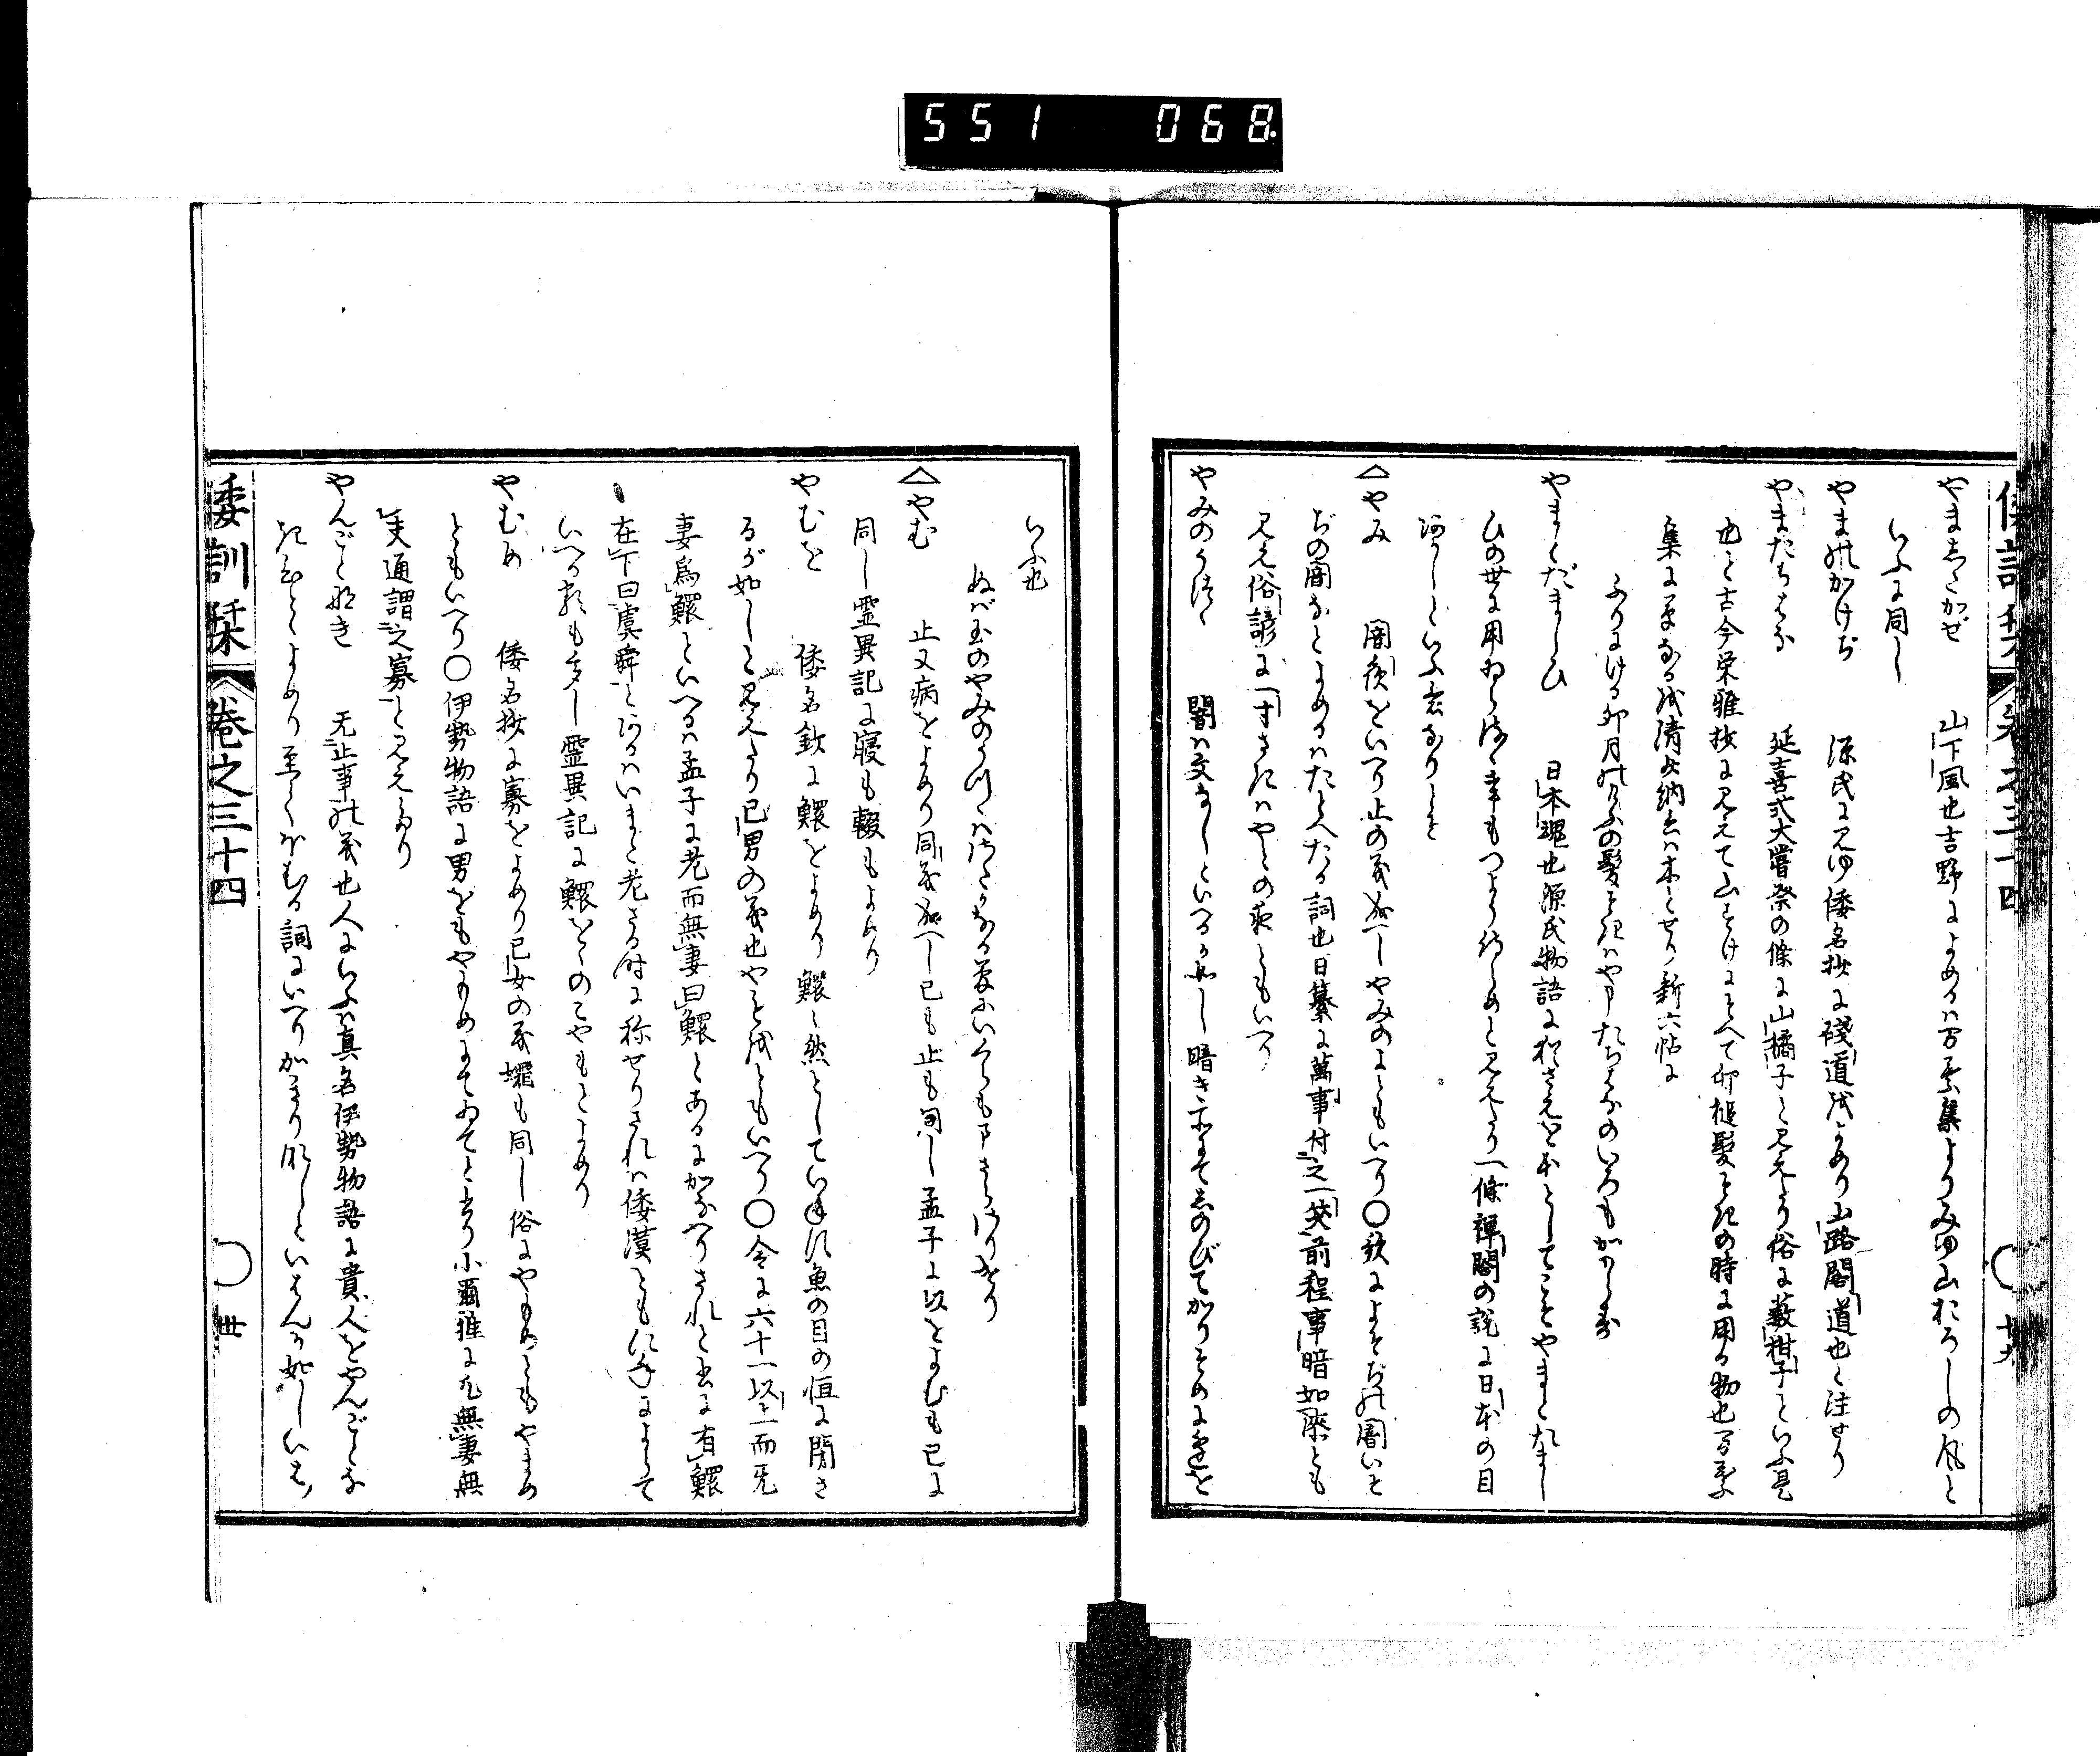 551 068
倭訓栞 巻之三十四 〇 廿九
やましたかぜ 山下風也吉野によめるハ万葉集よりみゆ山おろしの風と
いふに同し
やまのかけぢ 源氏に見ゆ倭名抄に棧道をよめり山路閣道也と注せり
やまたちはな 延喜式大嘗祭の條に山橘子と見えたり俗に藪柑子といふ是
也と古今栄雅抄に見えて山すけにそへて卯槌髪そきの時に用る物也万葉
集に
ふりにける卯月のけふの髪そきハやまたちはなのいろもかはらす
やまとだましひ 日本魂也源氏物語に猶さえを本としてこそやまとたまし
ひの世に用ゐらるゝ事もつよう侍らめと見えたり一條禅閤の説に日本の目
あかしといふ意なりとそ
△やみ 闇夜をいへり止の義成へしやみのよともいへり〇歌によそぢの闇いそ
ぢの闇なとよめるハたとへたる詞也日纂に萬事付之一笑前程事暗如漆とも
見え俗諺に一寸さきハやみの夜ともいへり
やみのうつゝ 闇ハ文なしといへるか如し暗き所にて忍のびてかりそめに逢を
いふ也
ぬば玉のやみのうつゝハさたかなる夢にいくらもまさらさりけり
△やむ 止又病をよめり同義成へし已も止も同し孟子に以をよむも已に
同し霊異記に寝も輟もよめり
やむを 倭名鈔に鰥をよめり鰥〻然としていねず魚の目の恒に閉さ
るが如しと見えたり已男の義也やもをともいへり〇令に六十一以上而无
妻為鰥といへるハ孟子に老而無妻曰鰥とあるにかなへりされと書に有鰥
在下曰虞舜とあるハいまた老さる時に称せりされハ倭漢ともに年によらて
いへる歟も多し霊異記に鰥をゝのこやもとよめり
やむめ 倭名抄に寡をよめり已女の義孀も同し俗にやもめともやまめ
ともいへり〇伊勢物語に男をもやもめにてゐてと書り小爾雅に凡無妻無
夫通謂之寡と見えたり
やんごとなき 无止事の義也人にいふハ真名伊勢物語に貴人をやんごとな
きひとゝよめり至てほむる詞にいへりかきりなしといはんか如しいはゝ
倭訓栞 巻之三十四 〇 丗